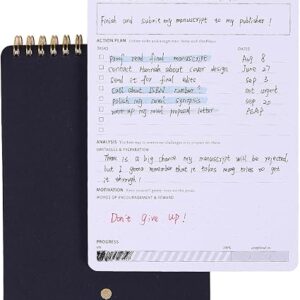 Finish and submit my manuscript to my publisher!
ACTION PLAN
TASKS DATES
proof read final manuscript Aug 8
contact Hannah about cover design June 27
Send it for final edits Sep 3
Call about ISBN number? not urgent
polish my novel synopsis Sep 20
work up my next proposal letter ASAP
ANALYSIS
OBSTACLES & PREPARATION
There is a big chance my manuscript will be rejected,
but I gonna remember that it takes many tries to get
it through!
MOTIVATION
WORDS OF ENCOURAGEMENT & REWARD
Don't give up!
PROGRESS